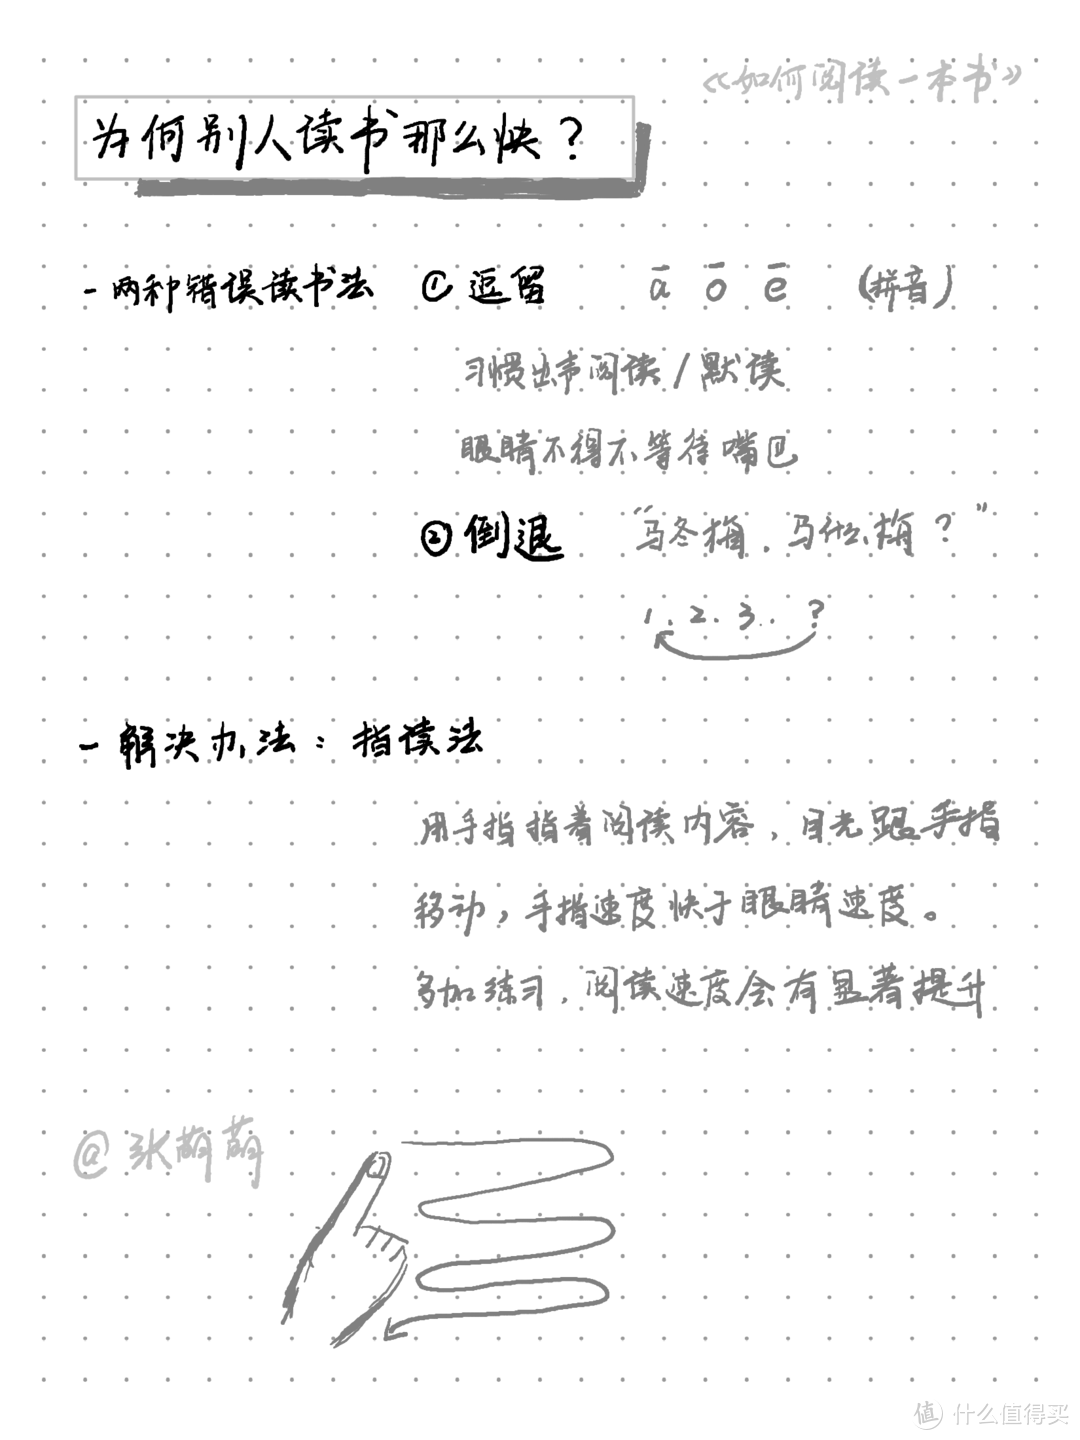 《如何阅读一本书》
为何别人读书那么快？
- 两种错误读书法 ① 逗留 ā ō ē (拼音)
习惯出声阅读 / 默读
眼睛不得不等待嘴巴
② 倒退 “马冬梅，马什么梅？”
1. 2. 3. . ?
- 解决办法：指读法
用手指指着阅读内容，目光跟手指
移动，手指速度快于眼睛速度。
多加练习，阅读速度会有显著提升
@ 张萌萌
值 什么值得买